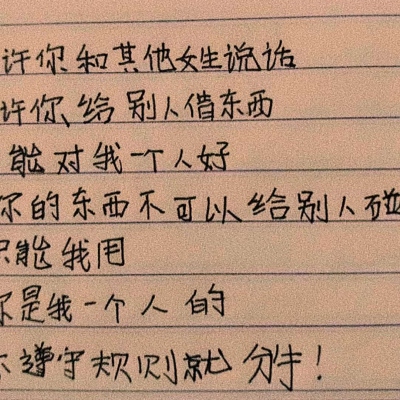 许你和其他女生说话
许你给别人借东西
能对我一个人好
你的东西不可以给别人碰
只能我用
你是我一个人的
不遵守规则就分手！